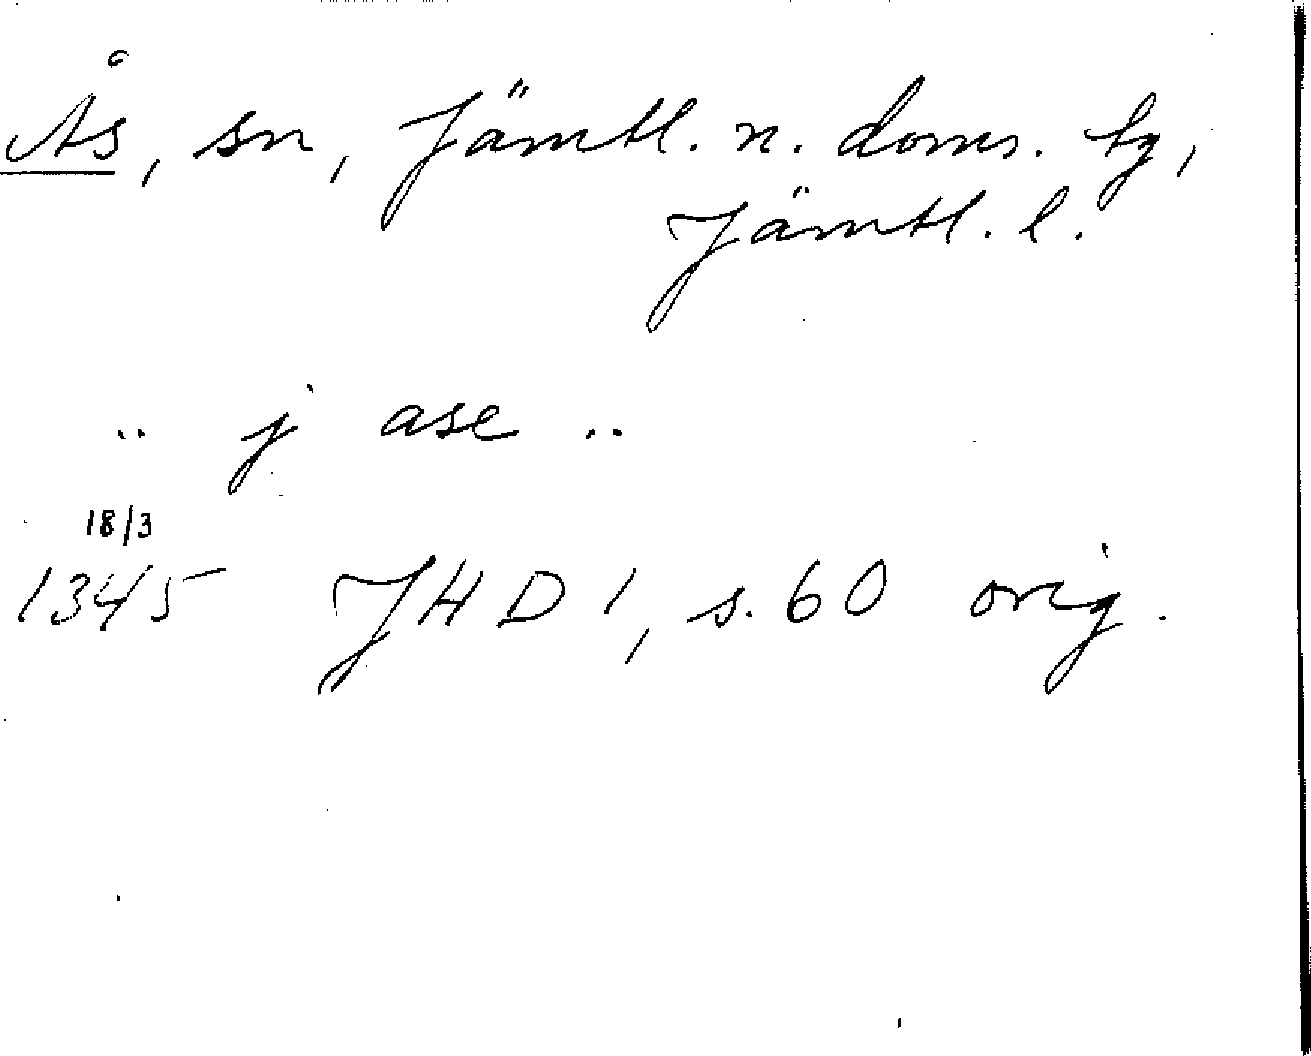 Ås, sn, Jämtl. n. doms. tg,
Jämtl. l.
.. j ase ..
18/3
1345 JHD 1, s. 60 orig.